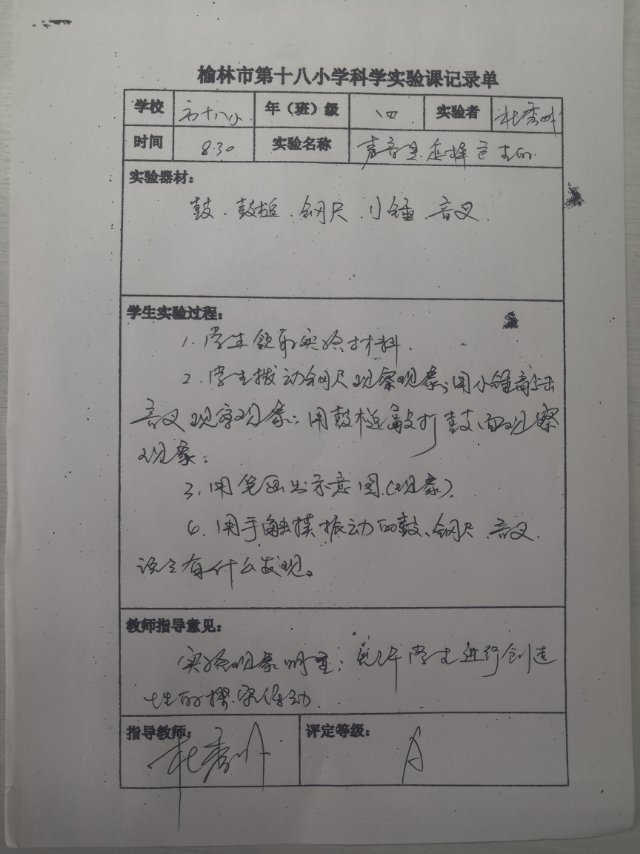 榆林市第十八小学科学实验课记录单
学校 市十八小 年（班）级 四 实验者
时间 8:30 实验名称 声音是怎样产生的
实验器材：
鼓、鼓槌、钢尺、小锤、音叉
学生实验过程：
1、学生领取实验材料.
2、学生拨动钢尺观察现象；用小锤敲击
音叉观察现象；用鼓槌敲打鼓面观察
现象；
3、用笔画出示意图(现象).
4、用手触摸振动的鼓、钢尺、音叉.
说会有什么发现。
教师指导意见：
实验现象明显；允许学生进行创造
性的探究活动.
指导教师： 评定等级： A